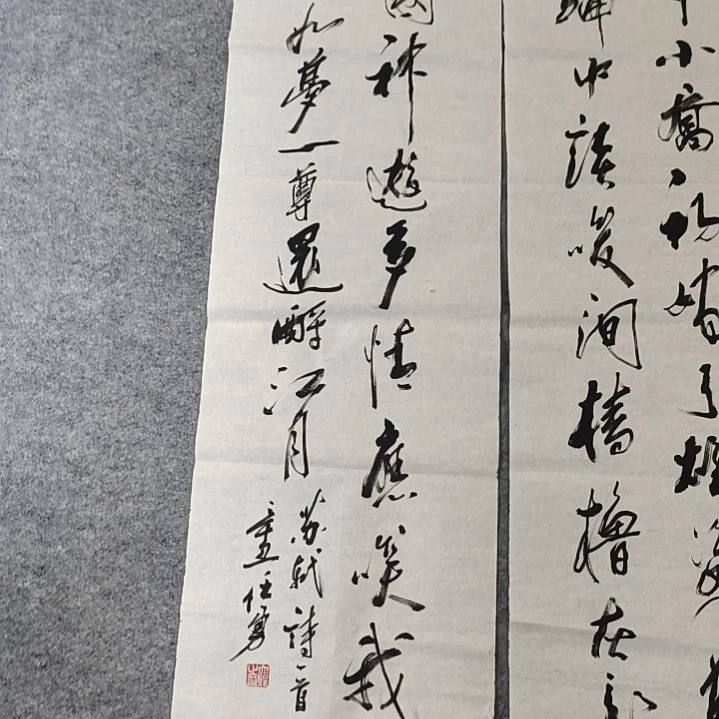 小喬初嫁了雄姿
綸中談笑間檣櫓灰飛
國神遊多情應笑我
如夢一尊還酹江月
蘇軾詩一首
任勇